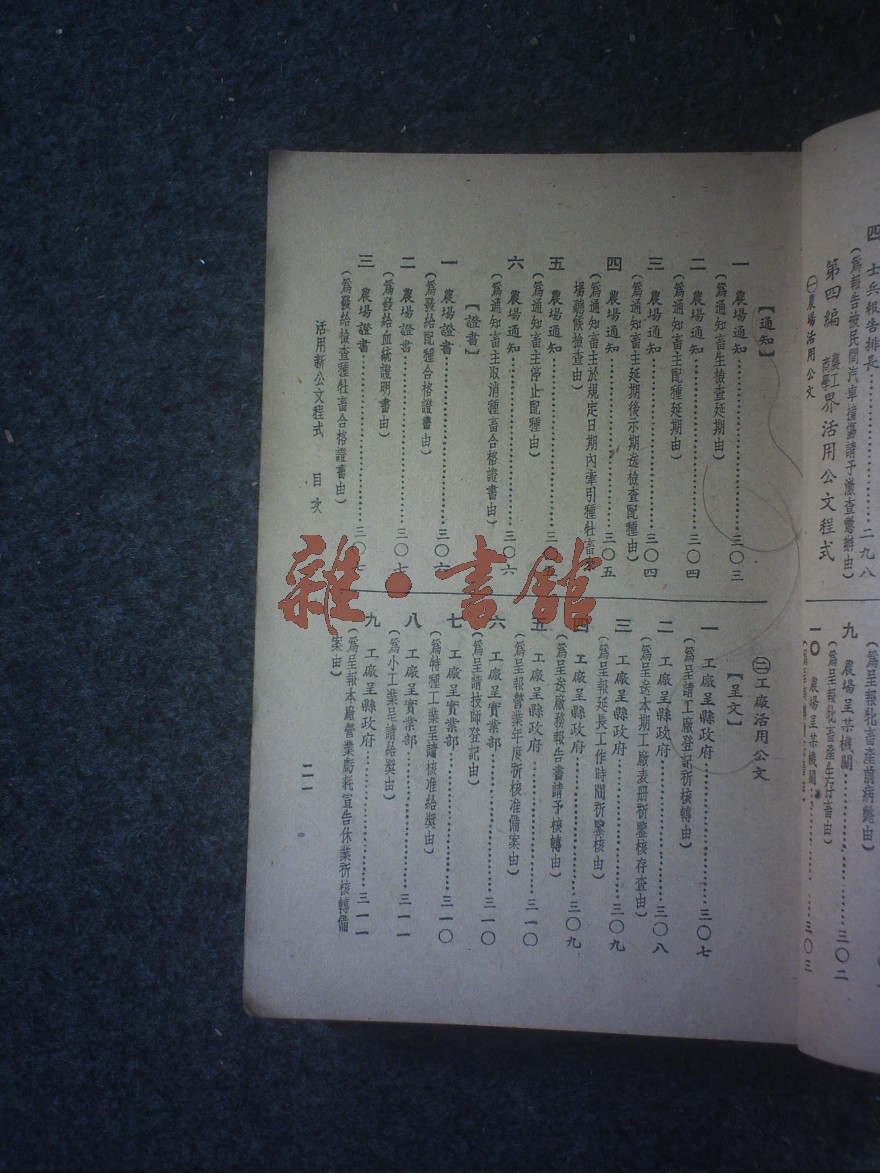 四　士兵報告排長………二九八
(爲報告被民間汽車撞傷請予澈查懲辦由)
第四編　農工商學界活用公文程式
㊀農場活用公文
(爲呈報牝畜產前病斃由)
九　農場呈某機關………三〇二
(爲呈報牝畜產生仔畜由)
一〇　農場呈某機關………三〇三
【通知】
一　農場通知………三〇三
(爲通知畜生檢查延期由)
二　農場通知………三〇四
(爲通知畜主配種延期由)
三　農場通知………三〇四
(爲通知畜主延期後示期送檢查配種由)
四　農場通知………三〇五
(爲通知畜主於規定日期內牽引種牡畜
場聽候檢查由)
五　農場通知………三〇
(爲通知畜主停止配種由)
六　農場通知………三〇六
(爲通知畜主取消種畜合格證書由)
【證書】
一　農場證書………三〇六
(爲發給配種合格證書由)
二　農場證書………三〇七
(爲發給血統證明書由)
三　農場證書………三〇
(爲發給檢查種牡畜合格證書由)
㊁工廠活用公文
【呈文】
一　工廠呈縣政府………三〇七
(爲呈請工廠登記祈核轉由)
二　工廠呈縣政府………三〇八
(爲呈送本期工廠表册祈鑒核存查由)
三　工廠呈縣政府………三〇九
(爲呈報延長工作時間祈鑒核由)
四　工廠呈縣政府………三〇九
(爲呈送廠務報告書請予核轉由)
五　工廠呈縣政府………三一〇
(爲呈報營業年度祈核准備案由)
六　工廠呈實業部………三一〇
(爲呈請技師登記由)
七　工廠呈實業部………三一〇
(爲特種工業呈請核准給獎由)
八　工廠呈實業部………三一一
(爲小工業呈請給獎由)
九　工廠呈縣政府………三一一
(爲呈報本廠營業虧耗宣告休業祈核轉備
案由)
活用新公文程式　目次
二一
雜·書舘